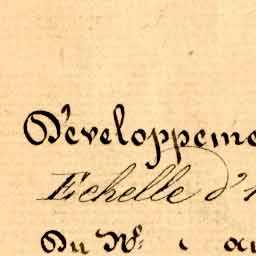 Développeme
Echelle d'1
Du Nº. au